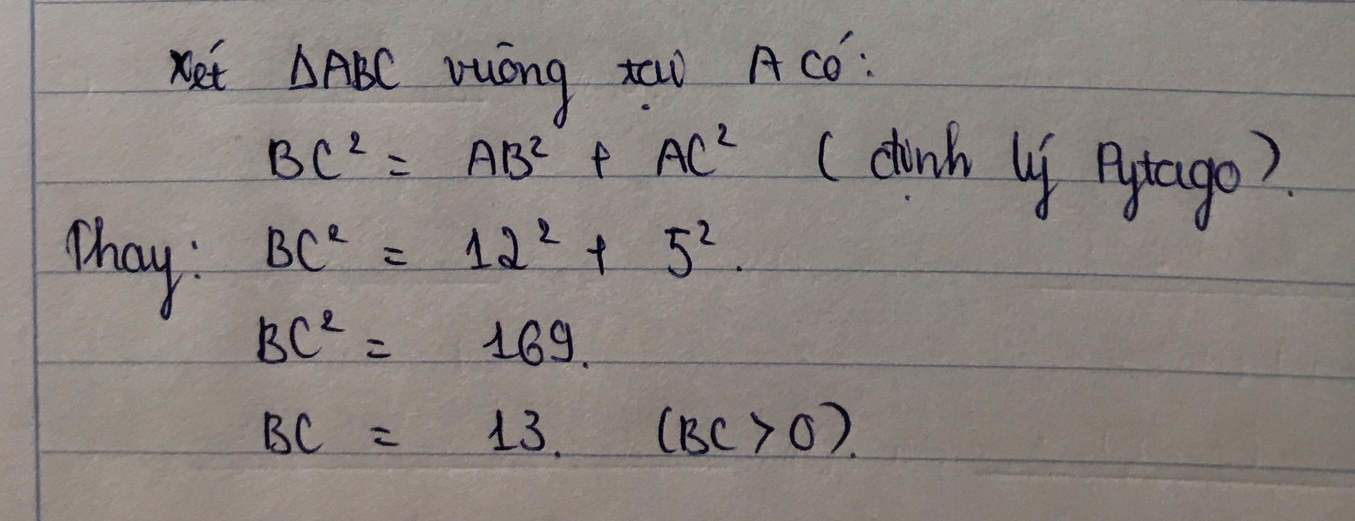 Xét ΔABC vuông tại A có:
BC² = AB² + AC² (định lý Pytago).
Thay: BC² = 12² + 5².
BC² = 169.
BC = 13. (BC > 0).